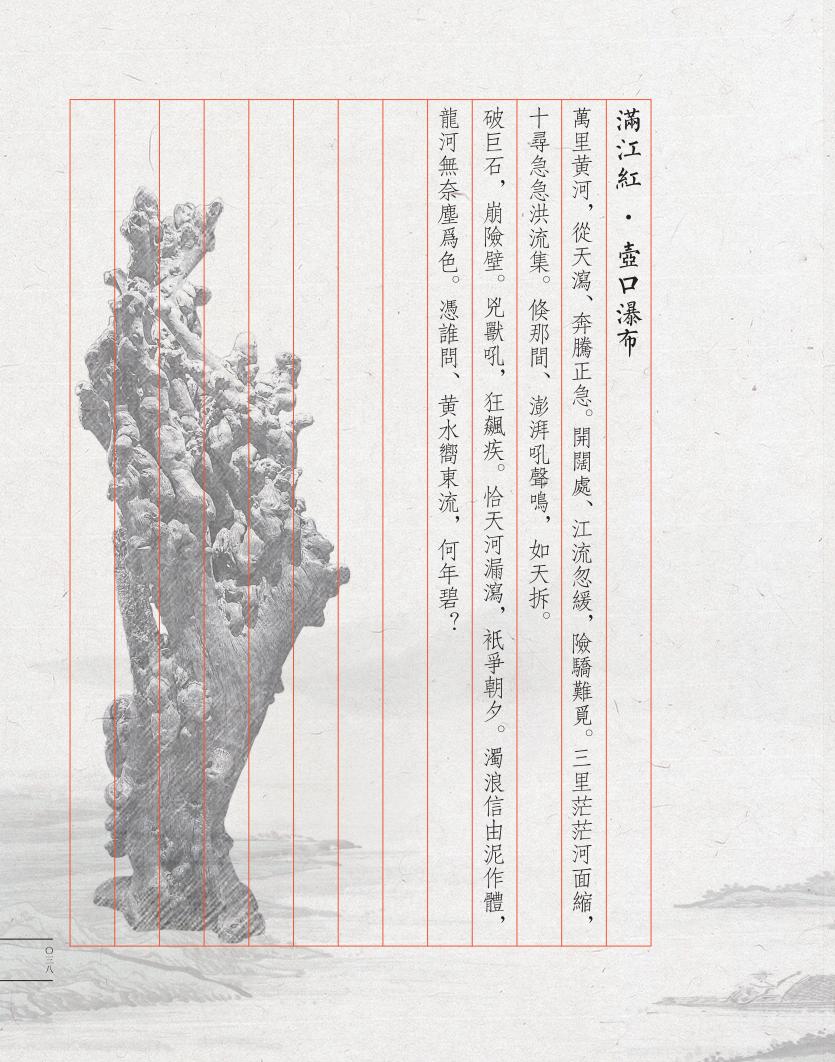 滿江紅·壺口瀑布
萬里黃河，從天瀉、奔騰正急。開闊處、江流忽緩，險驕難覓。三里茫茫河面縮，
十尋急急洪流集。倏那間、澎湃吼聲鳴，如天拆。
破巨石，崩險壁。兇獸吼，狂飆疾。恰天河漏瀉，祇爭朝夕。濁浪信由泥作體，
龍河無奈塵爲色。憑誰問、黃水嚮東流，何年碧？
〇三八